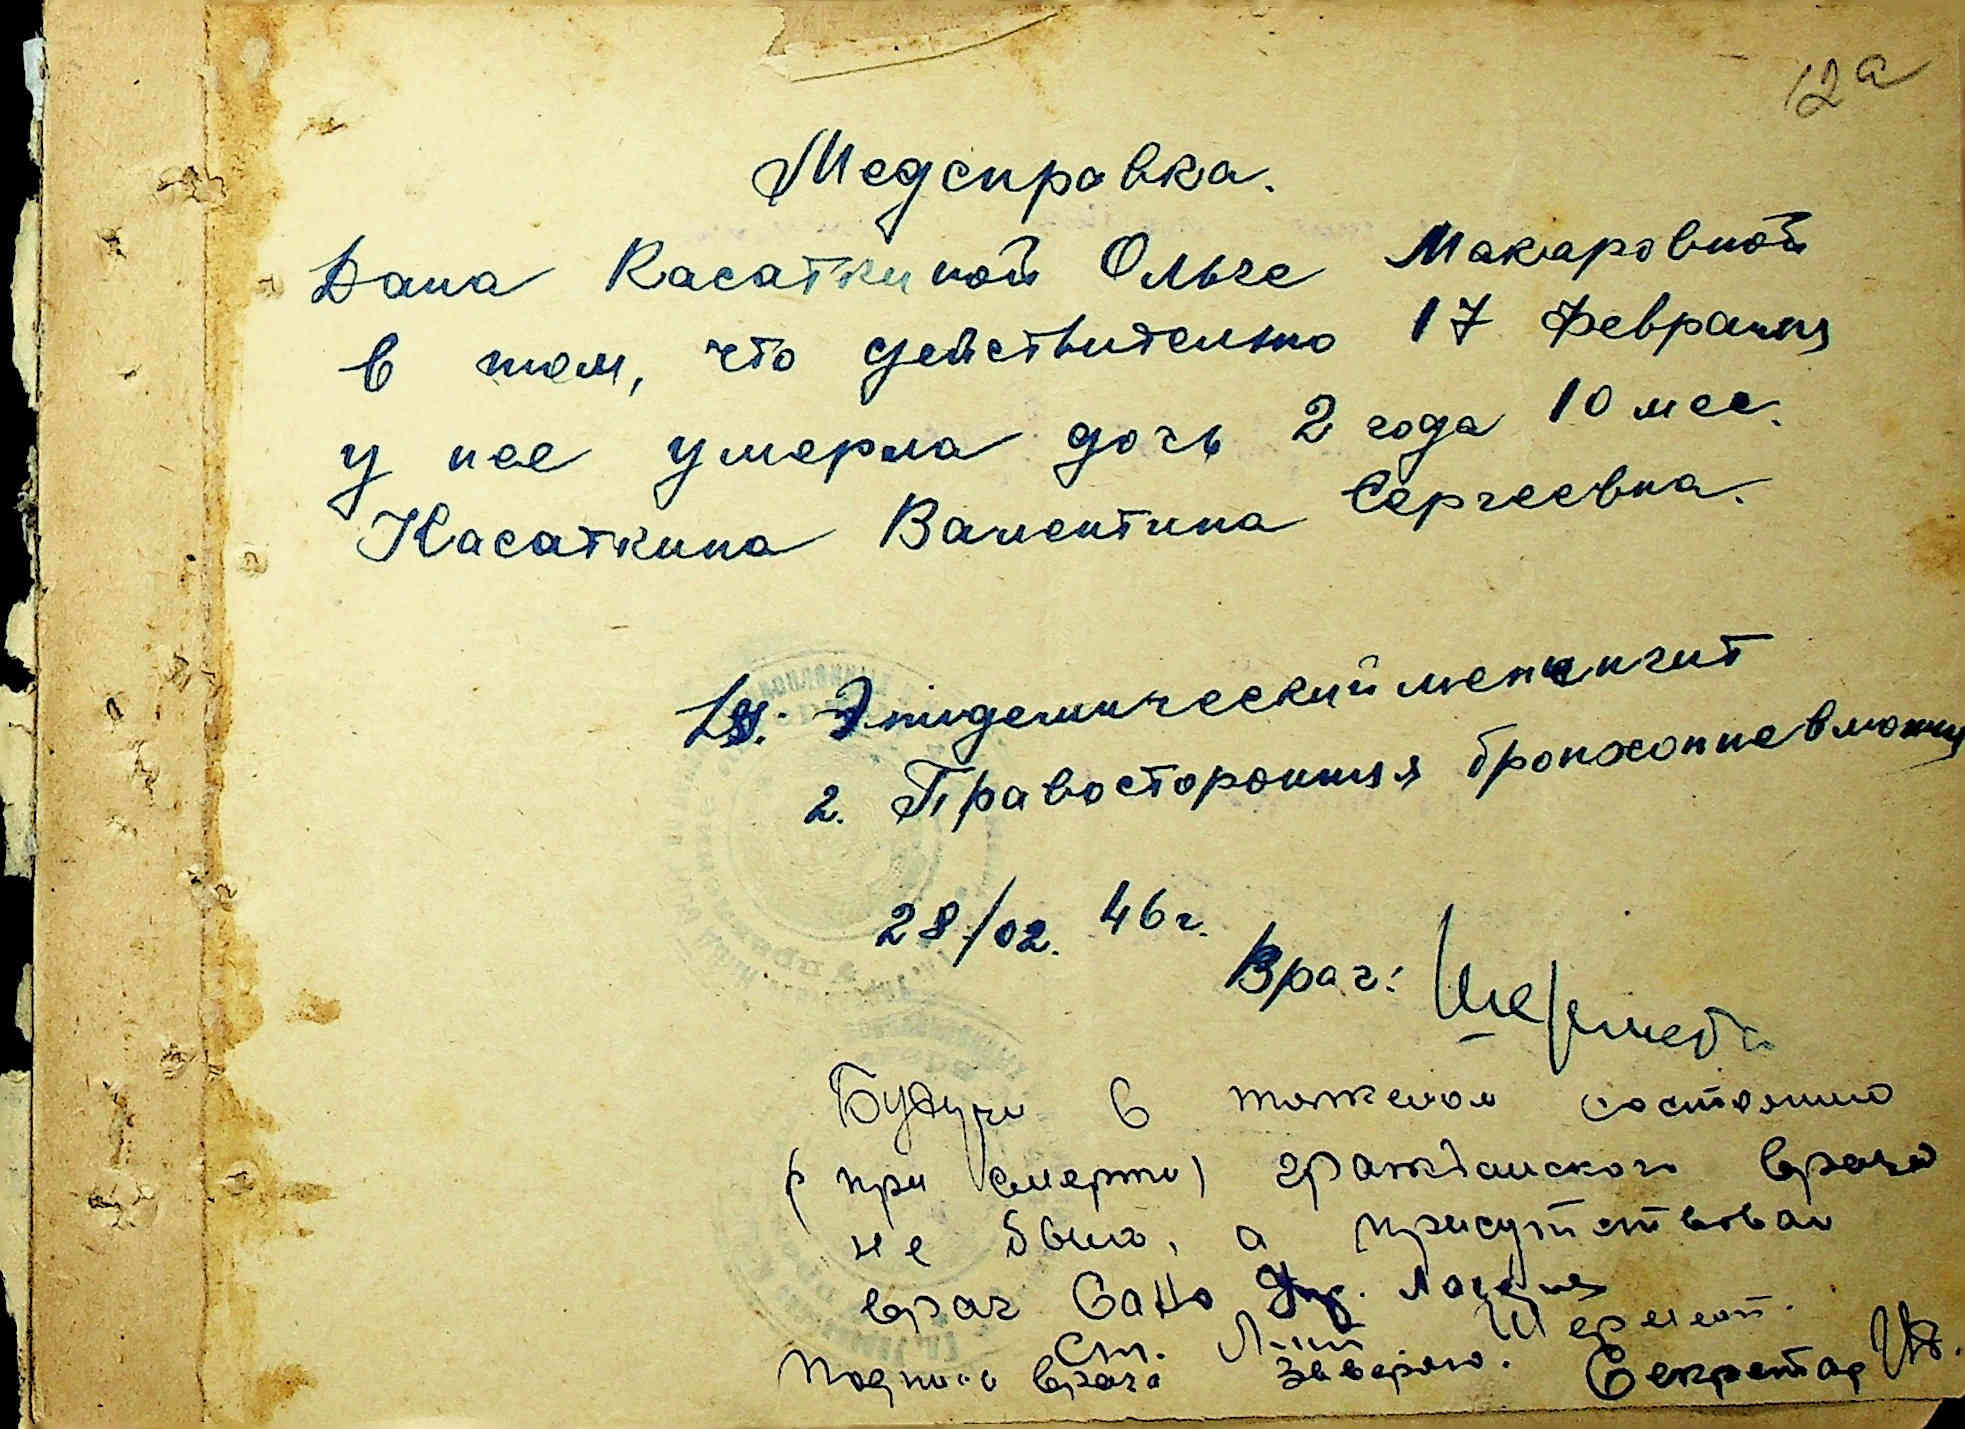 12а
Медсправка.
Дана Касаткиной Ольге Макаровной
в том, что действительно 17 февраля
у нее умерла дочь 2 года 10 мес.
Касаткина Валентина Сергеевна.
Эпидемический менингит
2. Правосторонняя бронхопневмония
28/02. 46г.
Врач:
Будучи в тяжелом состоянию
(при смерти) гражданского врача
не было, а присутствовал
врач
ст. Л-нт Шермет.
Подпись врача заверяю. Секретар